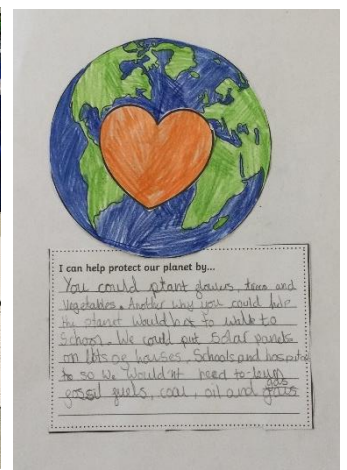 I can help protect our planet by...
You could plant flowers, trees and
vegetables. Another why you could help
the planet would be to walk to
School. We could put Solar panels
on lots of houses. Schools and hospitals
to so we wouldn't need to burn
gas
fossil fuels, coal, oil and